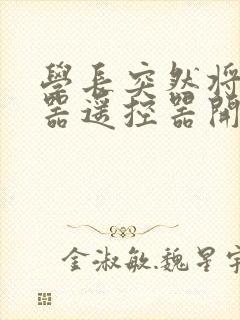 學長突然將
器遥控器開
金淑敏.魏星宇